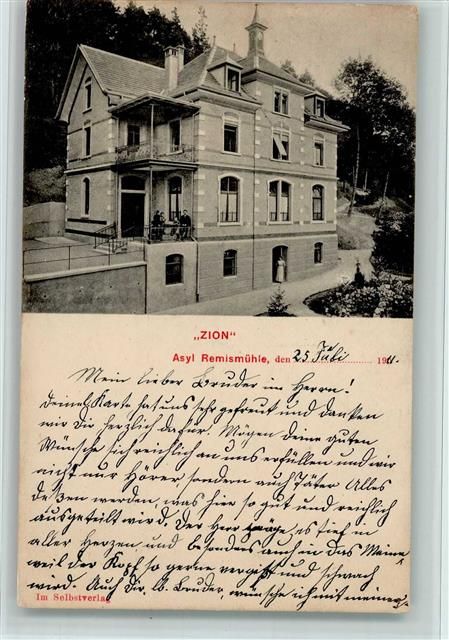 „ZION“
Asyl Remismühle, den 25 Juli 1911.
Mein lieber Bruder im Herrn!
Deine Karte hat uns sehr gefreut und danken
wir Dir herzlich dafür. Mögen deine guten
Wünsche sich reichlich an uns erfüllen und wir
nicht nur Hörer sondern auch Täter Alles
deßen werden, was hier so gut und reichlich
ausgeteilt wird. Der Herr präge es tief in
aller Herzen und besonders auch in das Meine
weil der Kopf so gerne vergißt und schwach
wird. Auch Dir, lb. Bruder, wünsche ich mit meiner
Im Selbstverlag